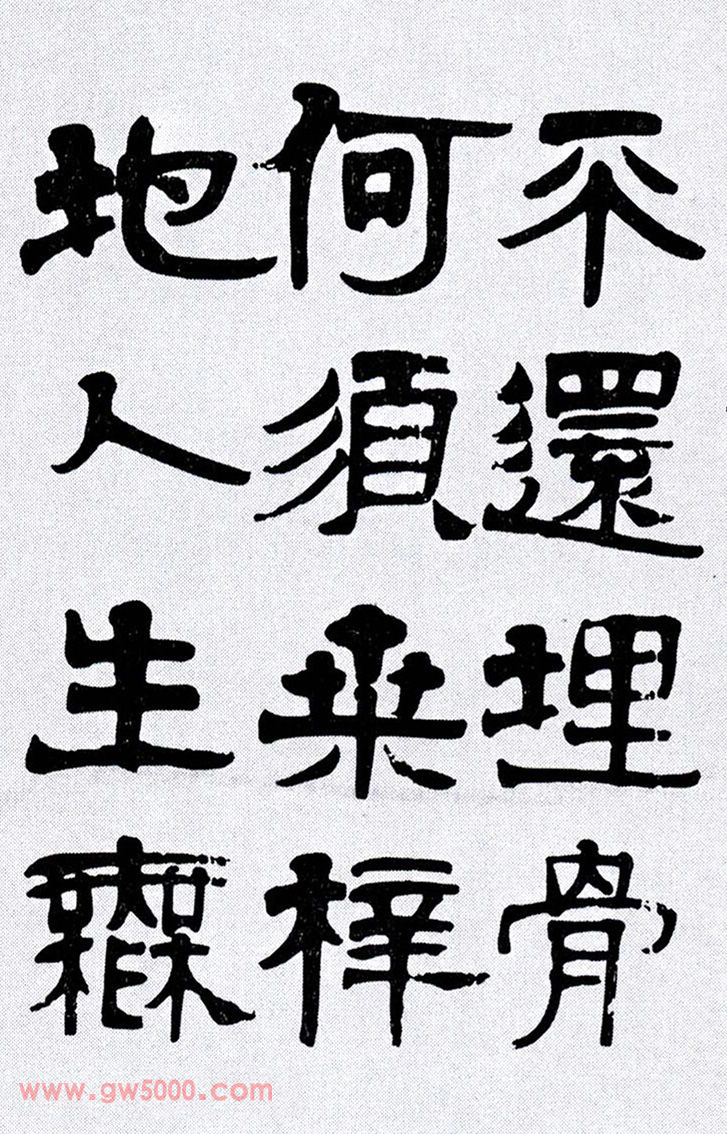 不還埋骨
何須桑梓
地人生無
www.gw5000.com